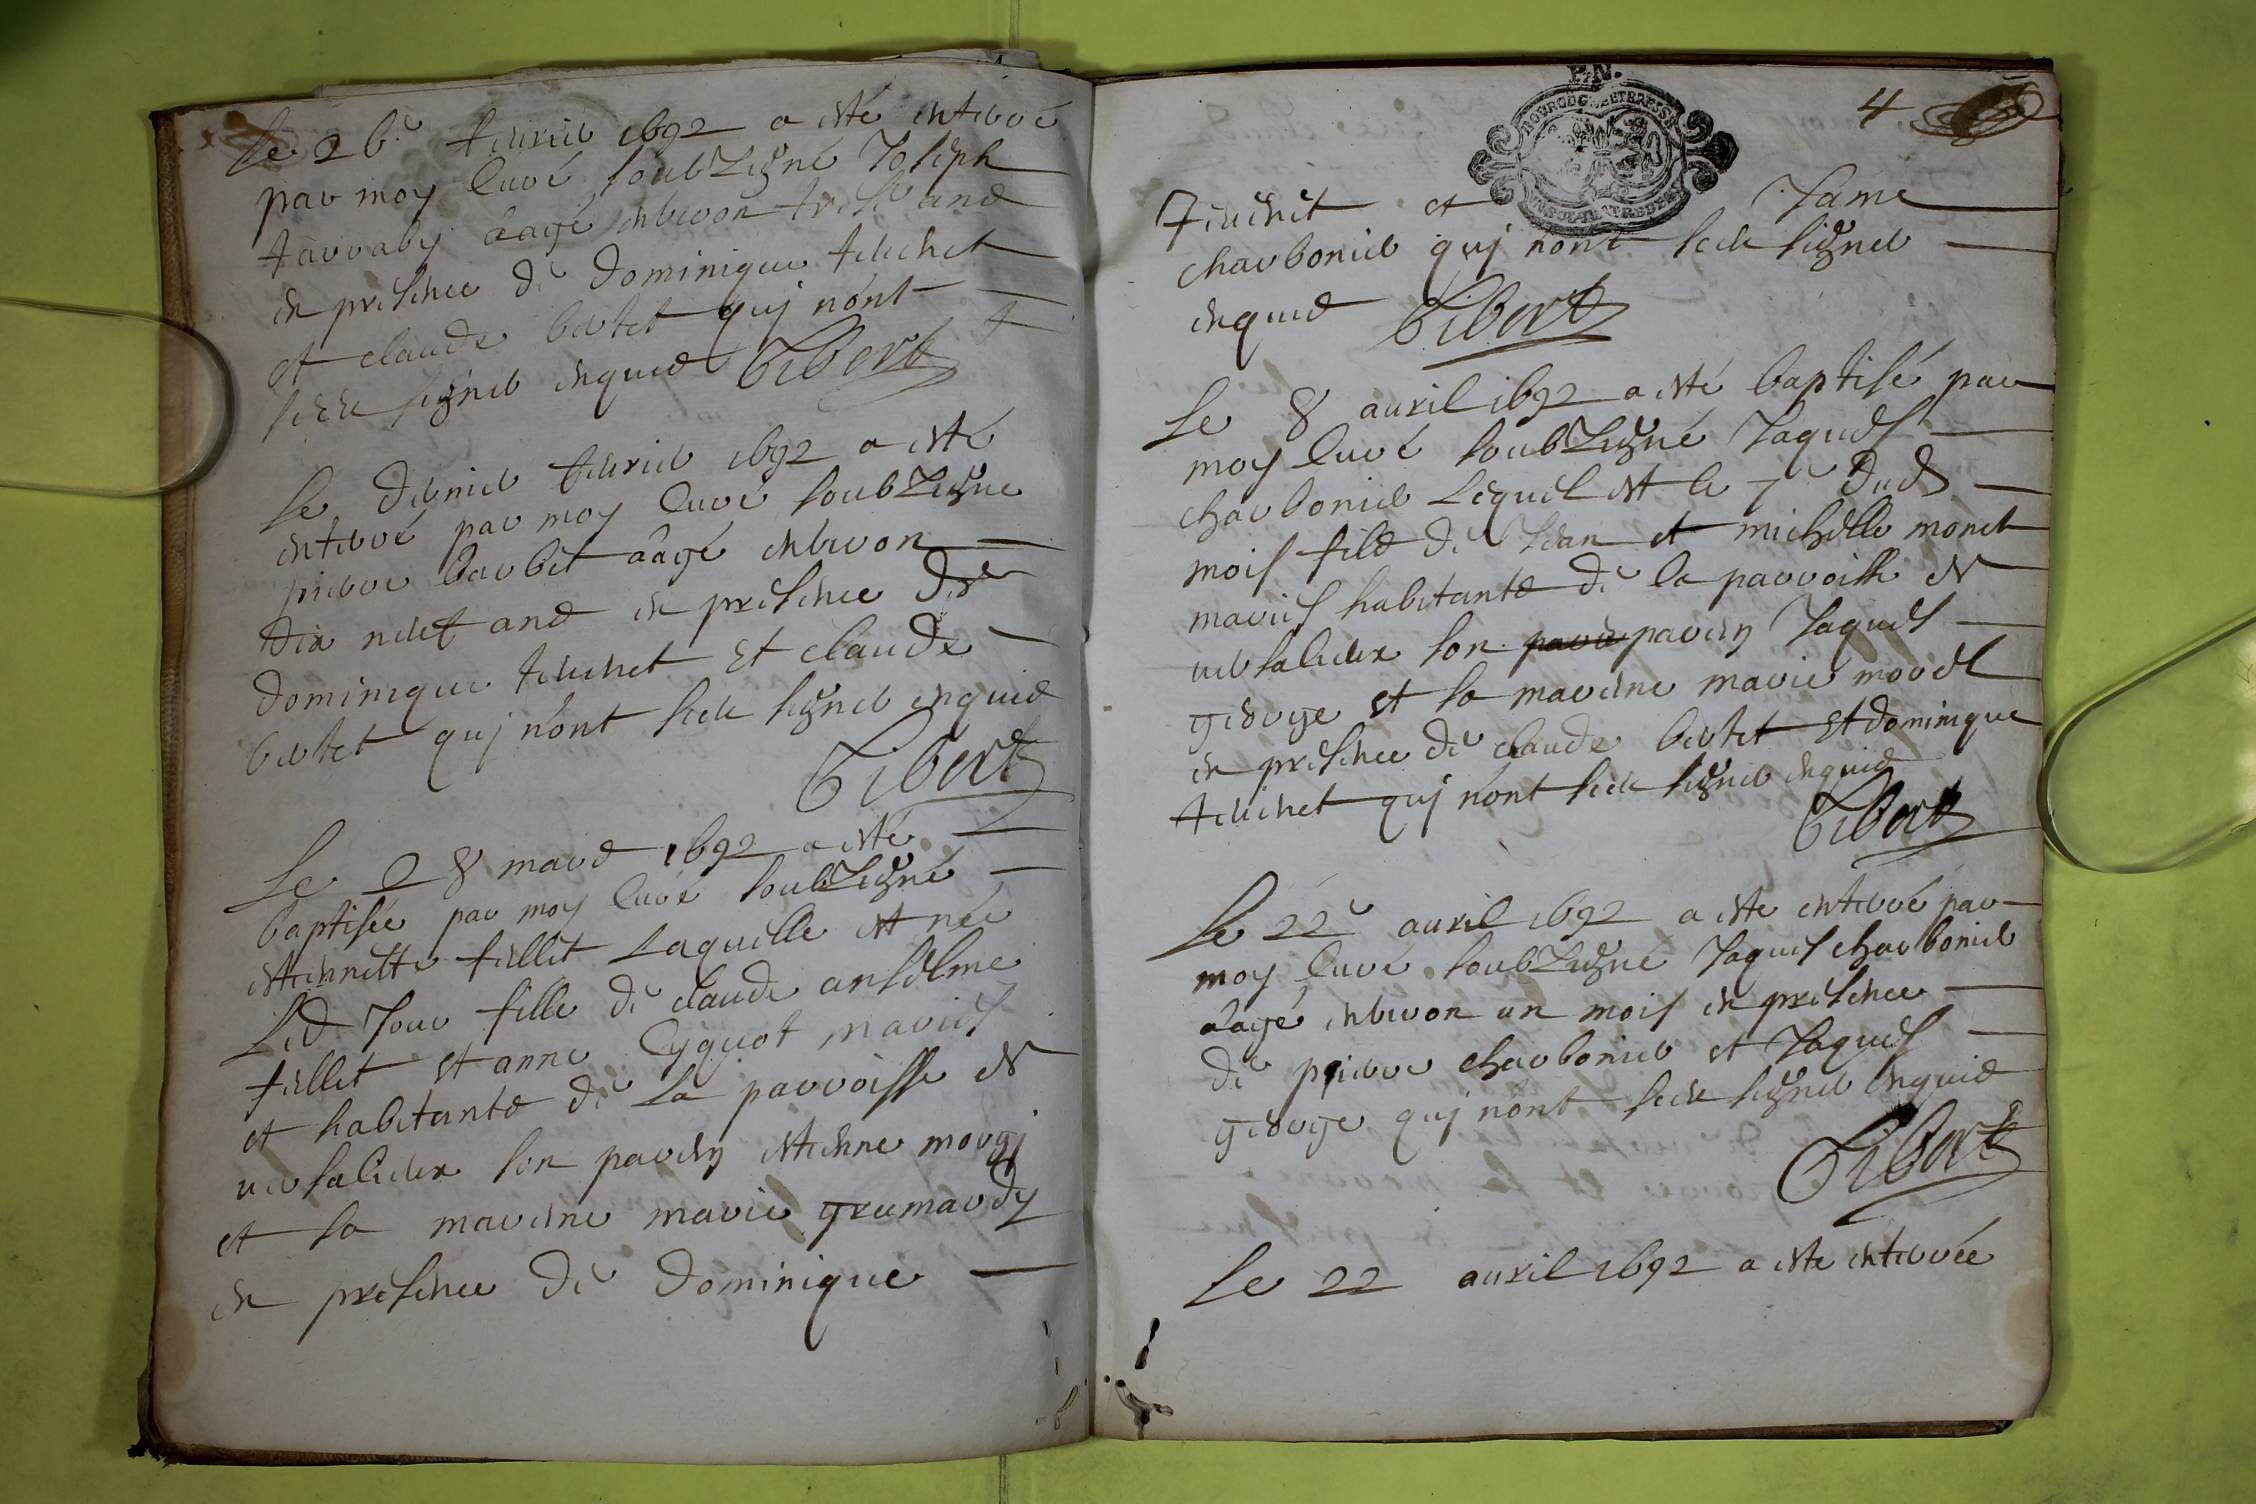 Le 26e feurier 1692 a esté enterré
par moy Curé soubzigné Joseph
farraby aagé enbiron trese ans
en presence de Dominique feuchet
et claude bertet quj nónt
sceu signer enquis Gibert
Le dernier feurier 1692 a esté
enterré par moy Curé soubzigne
pierre barbet aagé enbiron
dix neuf ans en presence de
Dominique feuchet Et claude
bertet quj nónt sceu signer enquis
Gibert
Le 28 mars 1692 a esté
baptisée par moy Curé soubzigné
estiennette fellet Laquelle est née
Led Jour fille de claude anselme
fellet et anne Cyquot mariés
et habitants de La parroisse de
uersalieux son parein estienne morgj
et sa mareine marie grumardy
en presence de Dominique
4
P.N.
feuchet et Jame
charbonier quj nónt sceu signer
enquis Gibert
Le 8 auril 1692 a esté baptisé par
moy Curé soubzigné Jaques
charbonier Lequel est le 7e dud
mois fils de Jean et michelle monet
mariés habitants de la parroisse de
uersalieux son parein Jaques
george et sa mareine marie morel
en presence de claude bertet et dominique
feuchet quj nónt sceu signer enquis
Gibert
Le 22e auril 1692 a este enterré par
moy Curé soubzigné Jaques charbonier
aagé enbiron un mois en presence
de pierre charbonier et Jaques
george quj nónt sceu signer enquis
Gibert
Le 22 auril 1692 a este enterrée